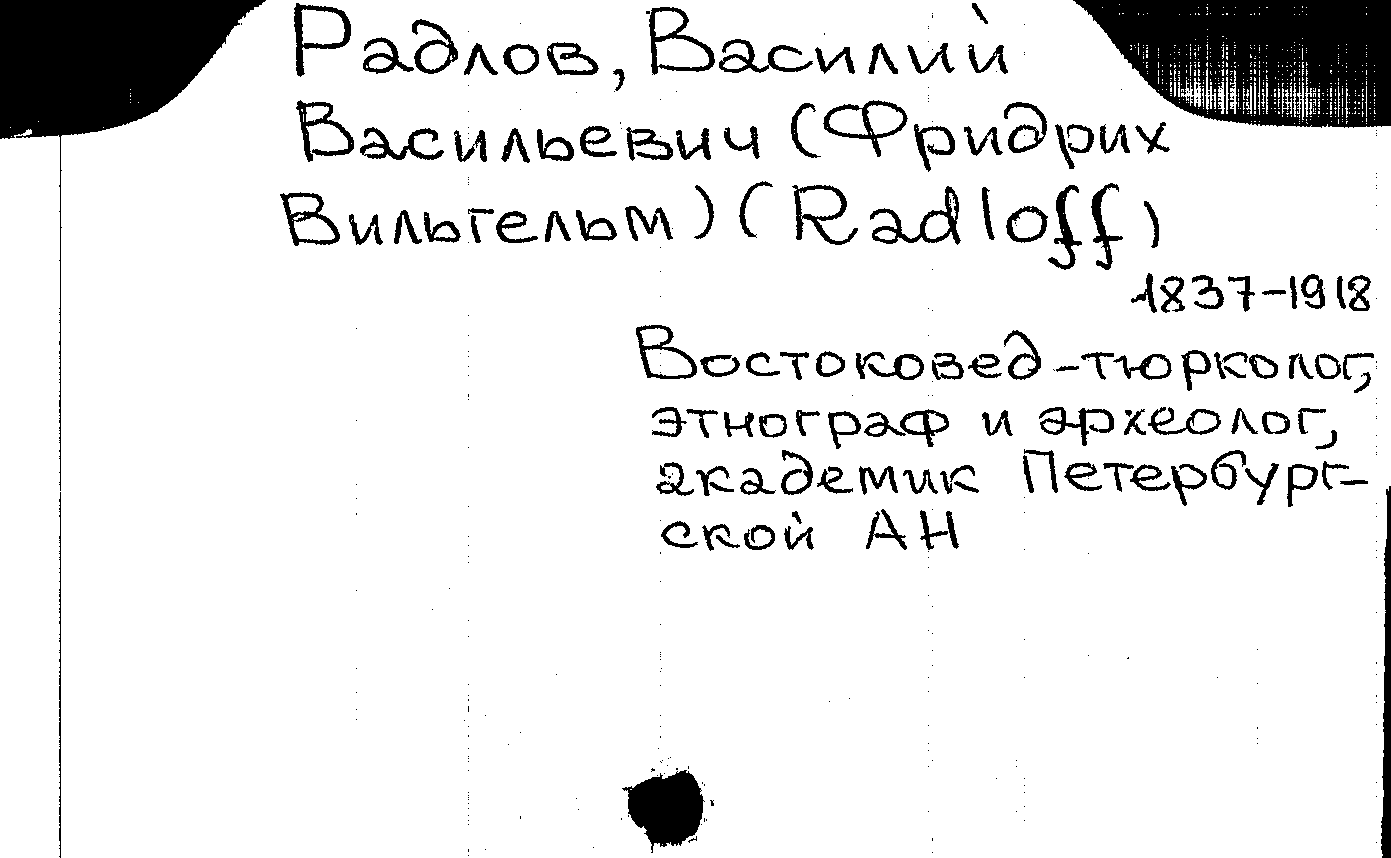 Радлов, Василий
Васильевич (Фридрих
Вильгельм) (Radloff)
1837-1918
Востоковед-тюрколог,
этнограф и археолог,
академик Петербург-
ской АН